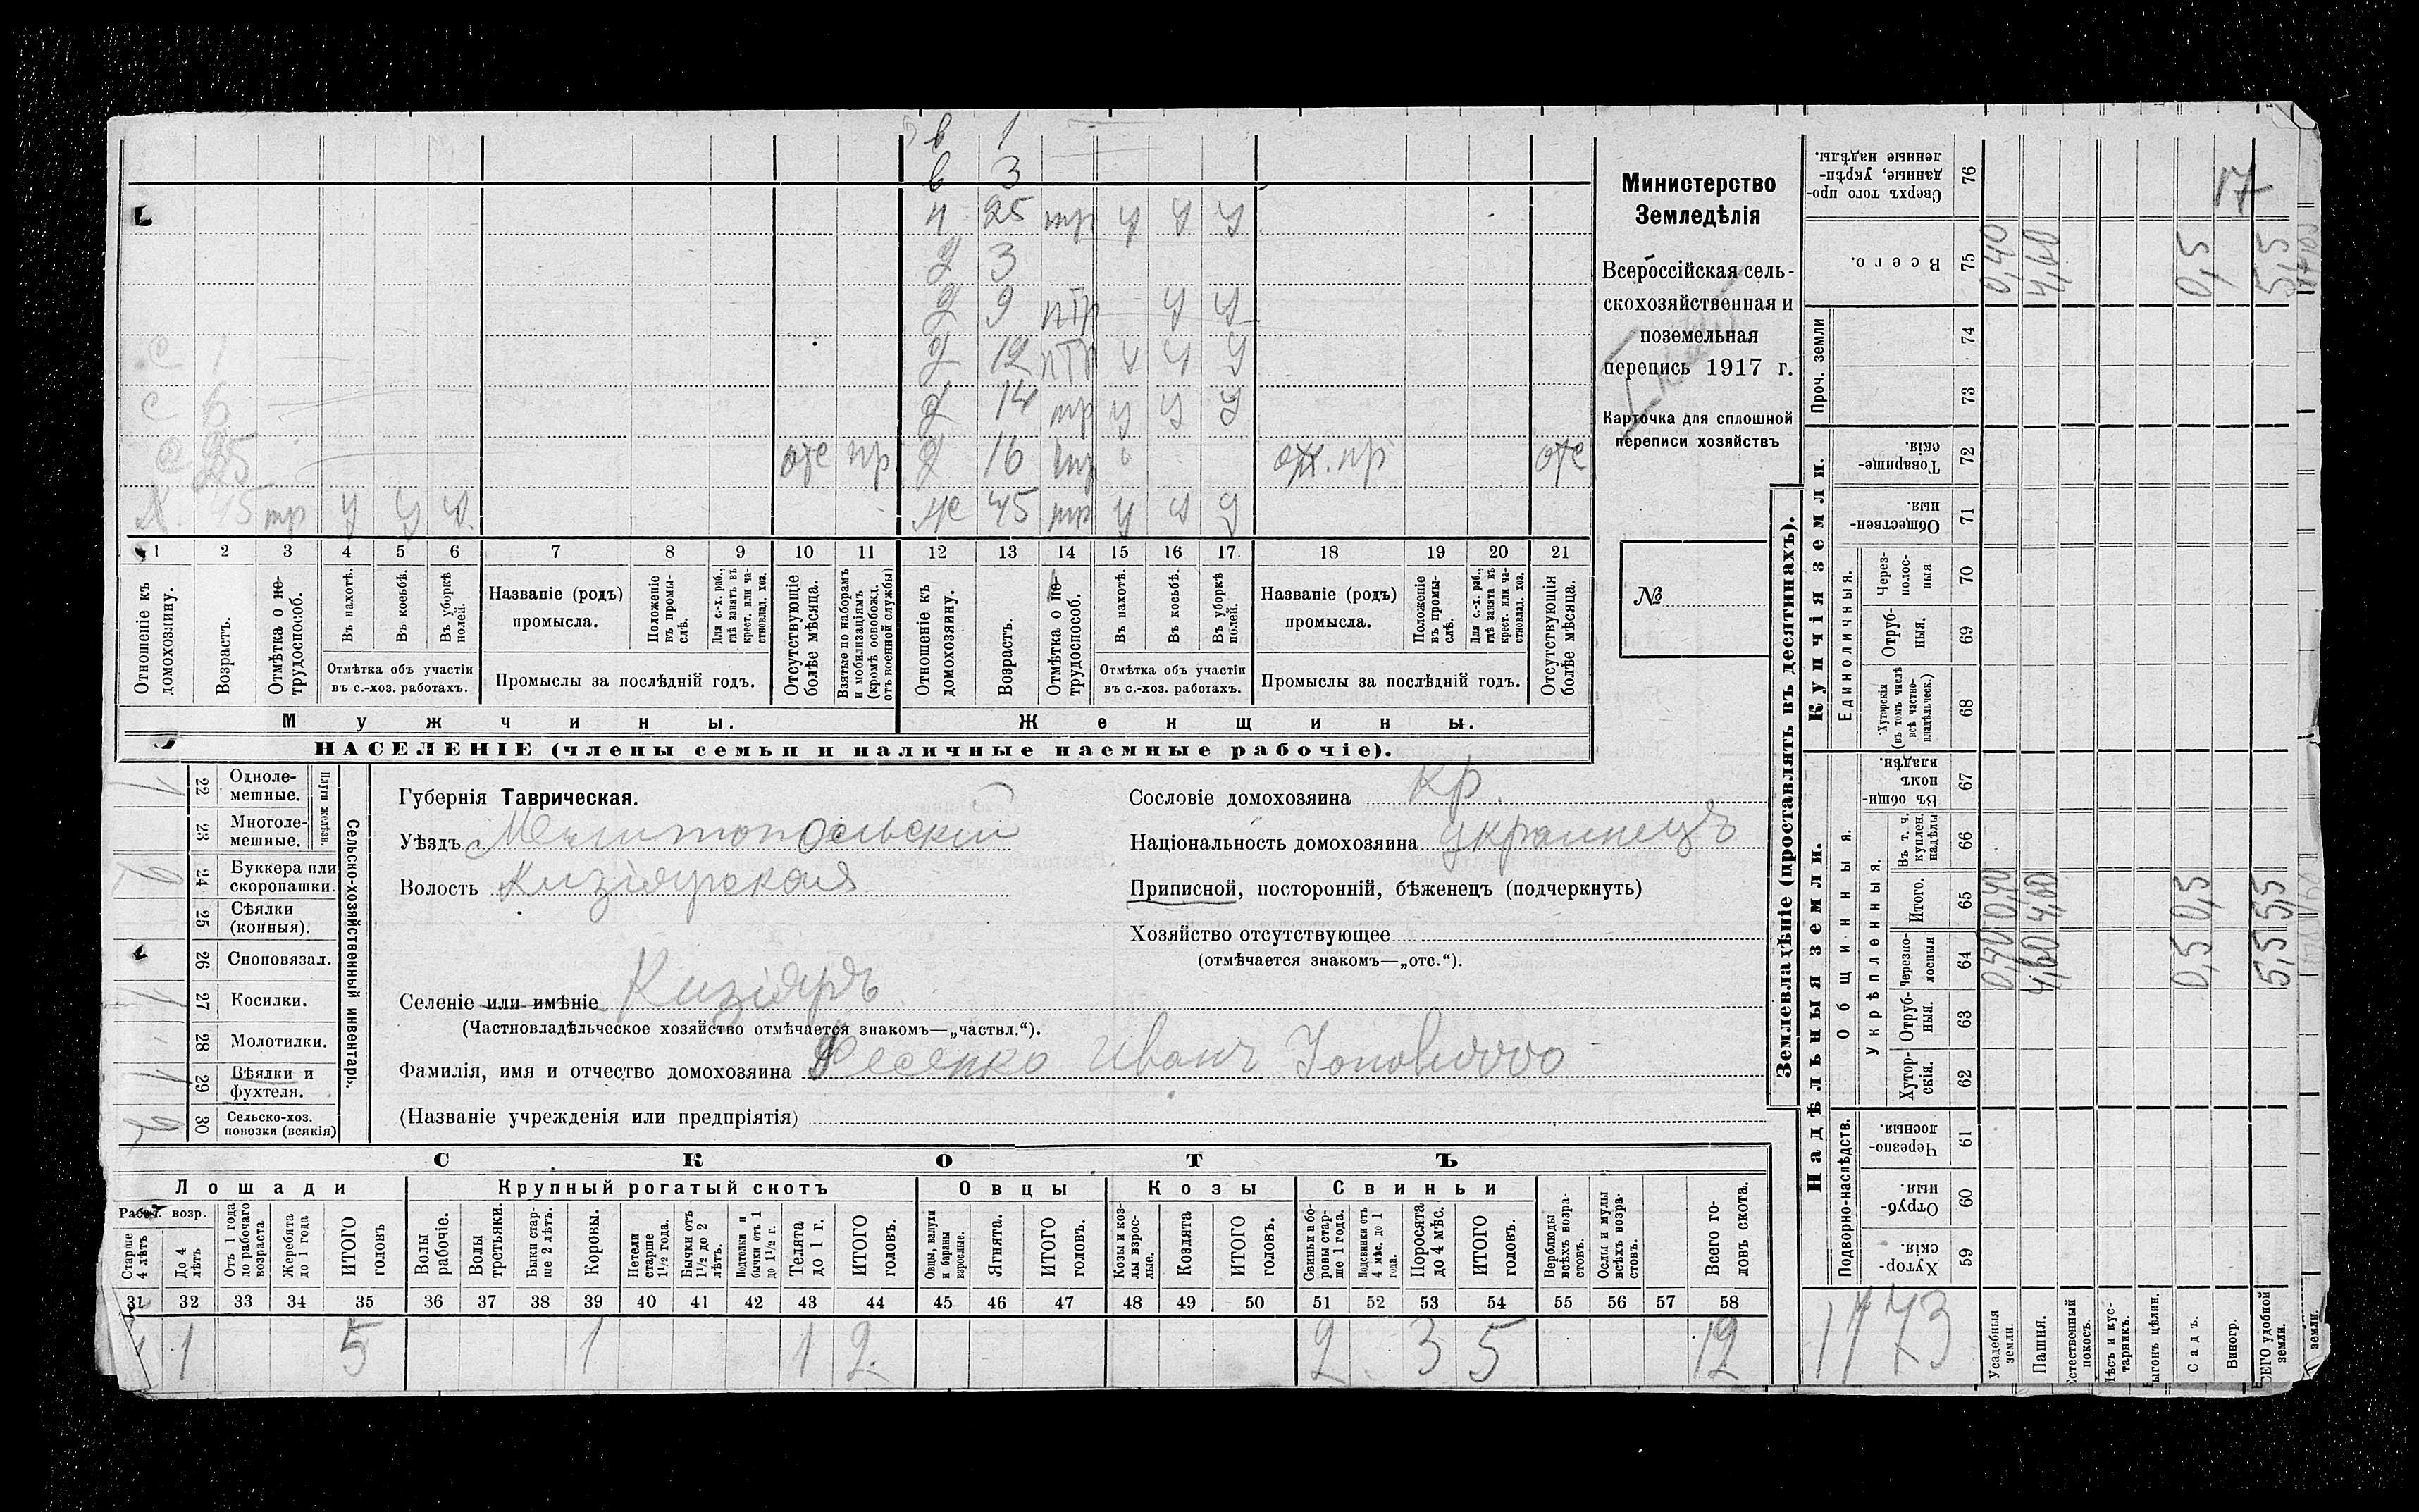 в 1
в 3
н 25 тр у у у
д 3
д 9 птр у у
д 12 птр у у у
д 14 тр у у у
отс пр д 16 тр отх. пр отс
тр у у у же 45 тр у у у
1 2 3 4 5 6 7 8 9 10 11 12 13 14 15 16 17. 18 19 20 21
Отношеніе къ домохозяину.
Возрастъ.
Отмѣтка о не-трудоспособ.
Въ пахотѣ.
Въ косьбѣ.
Въ уборкѣ полей.
Отмѣтка объ участіи
въ с.-хоз. работахъ.
Названіе (родъ)
промысла.
Положеніе въ промыслѣ.
Для с.-х. раб., гдѣ занятъ въ крест. или частновлад. хоз.
Промыслы за послѣдній годъ.
Отсутствующіе болѣе мѣсяца.
Взятые по наборамъ и мобилизаціямъ (кромѣ освобожд. отъ военной службы)
Отношеніе къ домохозяину.
Возрастъ.
Отмѣтка о не-трудоспособ.
Въ пахотѣ.
Въ косьбѣ.
Въ уборкѣ полей.
Отмѣтка объ участіи
въ с.-хоз. работахъ.
Названіе (родъ)
промысла.
Положеніе въ промыслѣ.
Для с.-х. раб., гдѣ занята въ крест. или частновлад. хоз.
Промыслы за послѣдній годъ.
Отсутствующія болѣе мѣсяца.
Мужчины. Женщины.
НАСЕЛЕНІЕ (члены семьи и наличные наемные рабочіе).
Министерство
Земледѣлія
Всероссійская сель-
скохозяйственная и
поземельная
перепись 1917 г.
Карточка для сплошной
переписи хозяйствъ
№
22 Однолемешные.
23 Многолемешные.
Плуги желѣзн.
24 Буккера или скоропашки.
25 Сѣялки (конныя).
26 Сноповязал.
27 Косилки.
28 Молотилки.
29 Вѣялки и фухтеля.
30 Сельско-хоз. повозки (всякія)
Сельско-хозяйственный инвентарь.
Губернія Таврическая.
Уѣздъ Мелитопольскій
Волость Кизіярская
Селеніе или имѣніе Кизіяръ
(Частновладѣльческое хозяйство отмѣчается знакомъ—„частвл.“).
Фамилія, имя и отчество домохозяина Фесенко Иванъ
(Названіе учрежденія или предпріятія)
Сословіе домохозяина кр.
Національность домохозяина украинецъ
Приписной, посторонній, бѣженецъ (подчеркнуть)
Хозяйство отсутствующее
(отмѣчается знакомъ—„отс.“).
СКОТЪ
Лошади Крупный рогатый скотъ Овцы Козы Свиньи
Рабоч. возр.
Старше 4 лѣтъ
До 4 лѣтъ
Отъ 1 года до рабочаго возраста
Жеребята до 1 года
ИТОГО головъ
Волы рабочіе.
Волы третьяки.
Быки старше 2 лѣтъ.
Коровы.
Нетели старше 1½ года.
Бычки отъ 1½ до 2 лѣтъ.
Подтелки и бычки отъ 1 до 1½ г.
Телята до 1 г.
ИТОГО головъ.
Овцы, валухи и бараны взрослые.
Ягнята.
ИТОГО головъ.
Козы и козлы взрослые.
Козлята
ИТОГО головъ.
Свиньи и боровы старше 1 года.
Подсвинки отъ 4 мѣс. до 1 года.
Поросята до 4 мѣс.
ИТОГО головъ.
Верблюды всѣхъ возрастовъ.
Ослы и мулы всѣхъ возрастовъ.
Всего головъ скота.
31 32 33 34 35 36 37 38 39 40 41 42 43 44 45 46 47 48 49 50 51 52 53 54 55 56 57 58
1 5 1 1 2 2 3 5 12
Землевладѣніе (проставлять въ десятинахъ).
Надѣльныя земли. Купчія земли. Проч. земли
Подворно-наслѣдств. Общинныя. Укрѣпленныя. Единоличныя.
59 Хуторскія.
60 Отрубныя.
61 Черезполосныя.
62 Хуторскія.
63 Отрубныя.
64 Черезполосныя
65 Итого.
66 Въ т. ч. куплен. надѣлы
67 Въ общинномъ владѣн.
68 Хуторскія (въ томъ числѣ всѣ частновладѣльческ.)
69 Отрубныя.
70 Черезполосныя
71 Общественныя
72 Товарищескія.
73
74
75 Всего.
76 Сверхъ того проданные, укрѣпленные надѣлы.
Усадебныя земли. 0,40 0,40 0,40
Пашня. 4,60 4,60 4,60
Естественный покосъ.
Лѣсъ и кустарникъ.
Выгонъ цѣлин.
Садъ. 0,5 0,5 0,5
Виногр.
ВСЕГО удобной земли. 5,5 5,5 5,5
земли.
17
1773